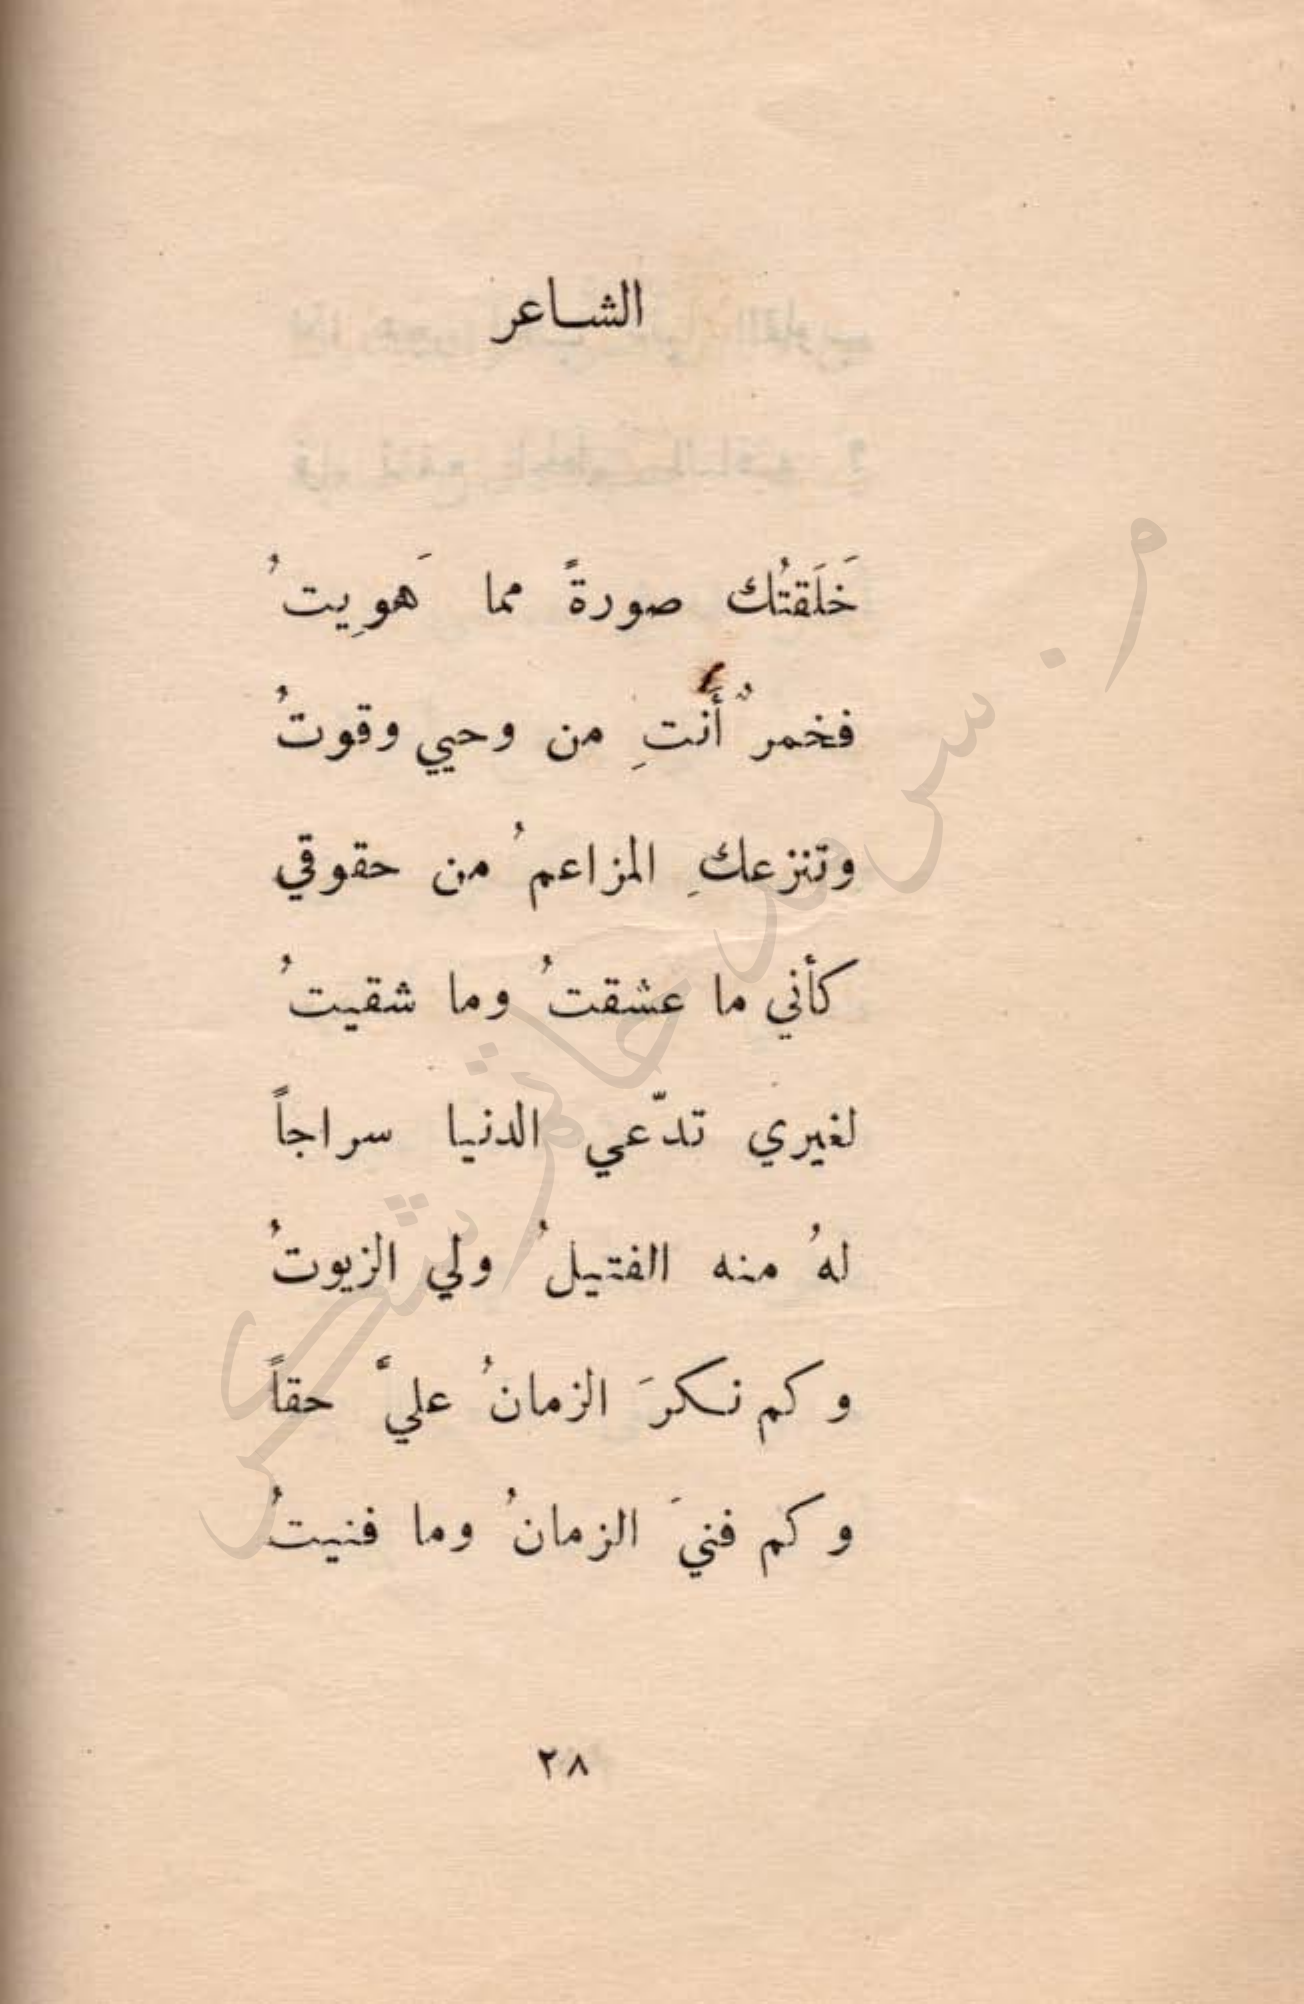 الشاعر
خَلَقتُك صورةً مما هَوِيتُ
فخمرٌ أَنتِ من وحيي وقوتُ
وتنزعكِ المزاعمُ من حقوقي
كأني ما عشقتُ وما شقيتُ
لغيري تدّعي الدنيا سراجاً
لهُ منه الفتيلُ ولي الزيوتُ
وكم نكرَ الزمانُ عليَّ حقاً
وكم فنيَ الزمانُ وما فنيتُ
٢٨